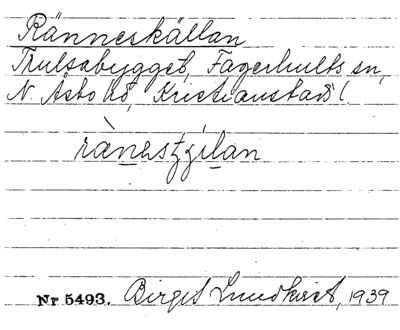 Ränneskällan
Trulsabygget, Fagerhults sn,
N. Åsbo hd, Kristianstads l.
Nr 5493. Birgit Lundkvist, 1939